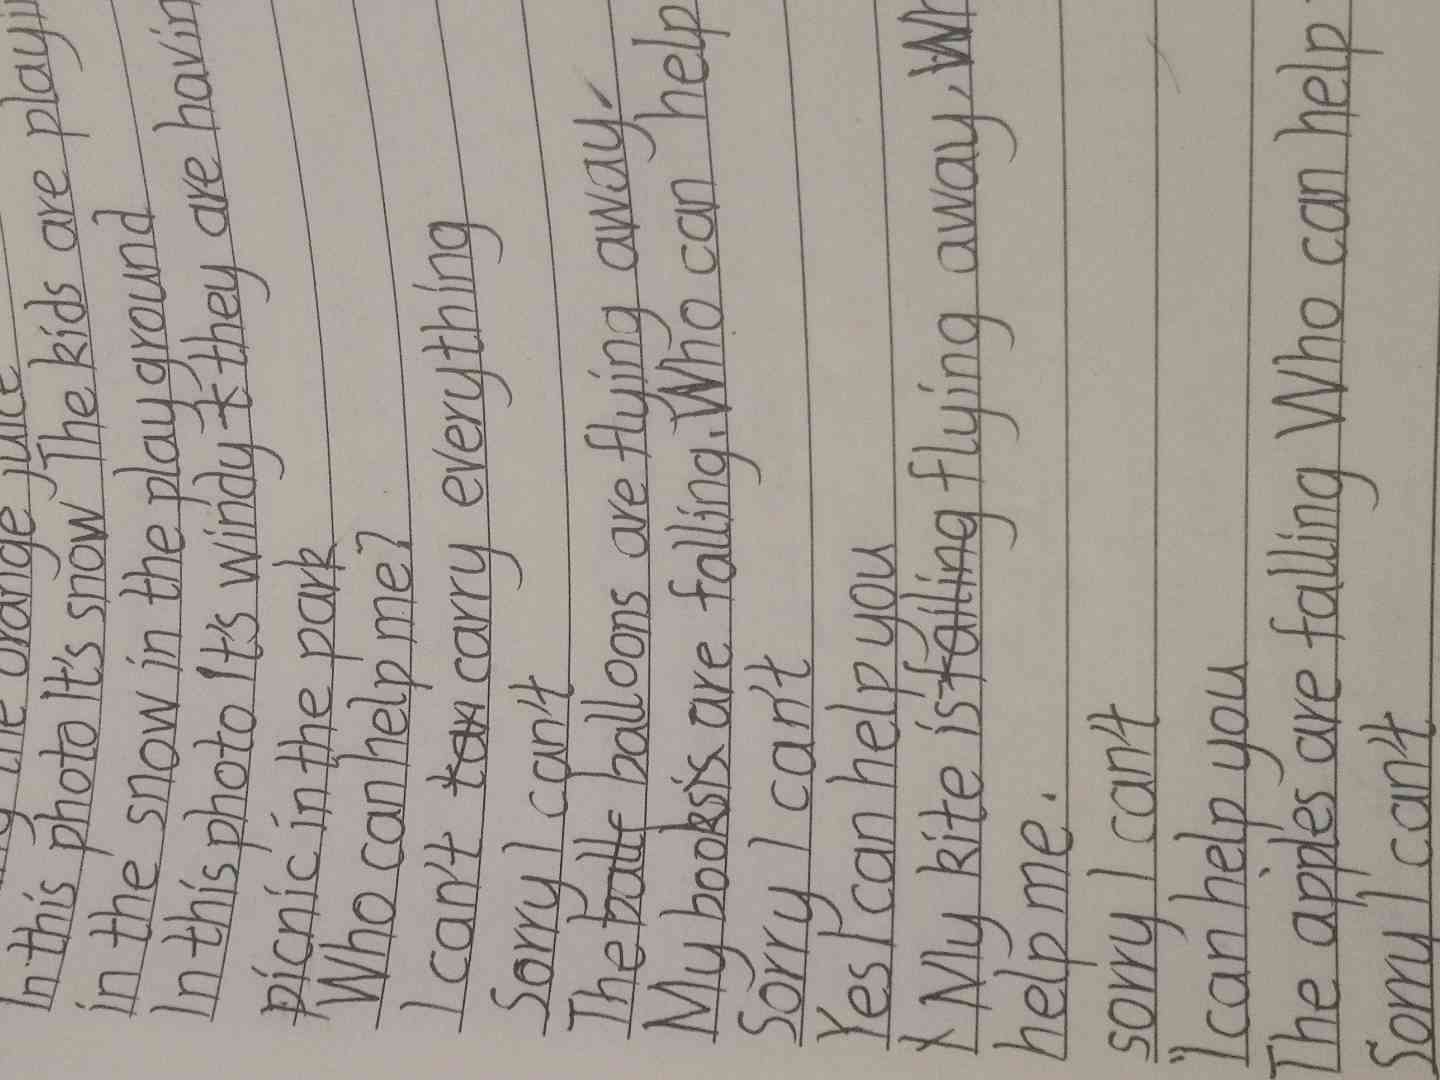 the orange juice
In this photo It's snow The kids are
in the snow in the playground
In this photo It's windy they are
picnic in the park
Who can help me?
I can't carry everything
Sorry I can't
The balloons are flying away.
My books are falling. Who can help
Sorry I can't
Yes I can help you
My kite is flying away,
help me.
sorry I can't
"I can help you
The apples are falling Who can help
Sorry I can't